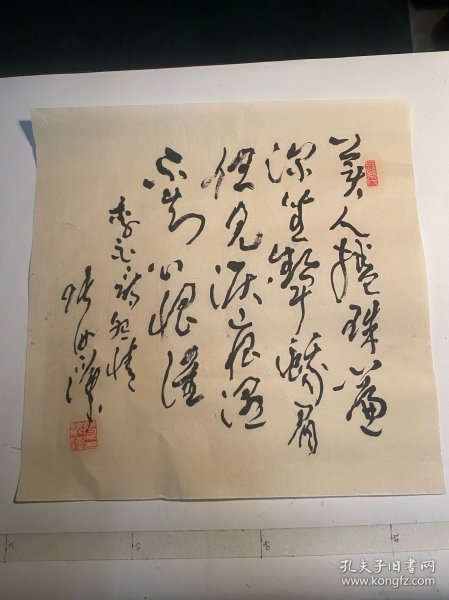 美人捲珠簾
深坐顰蛾眉
但見淚痕濕
不知心恨誰
李白诗怨情
孔夫子旧书网
www.kongfz.com